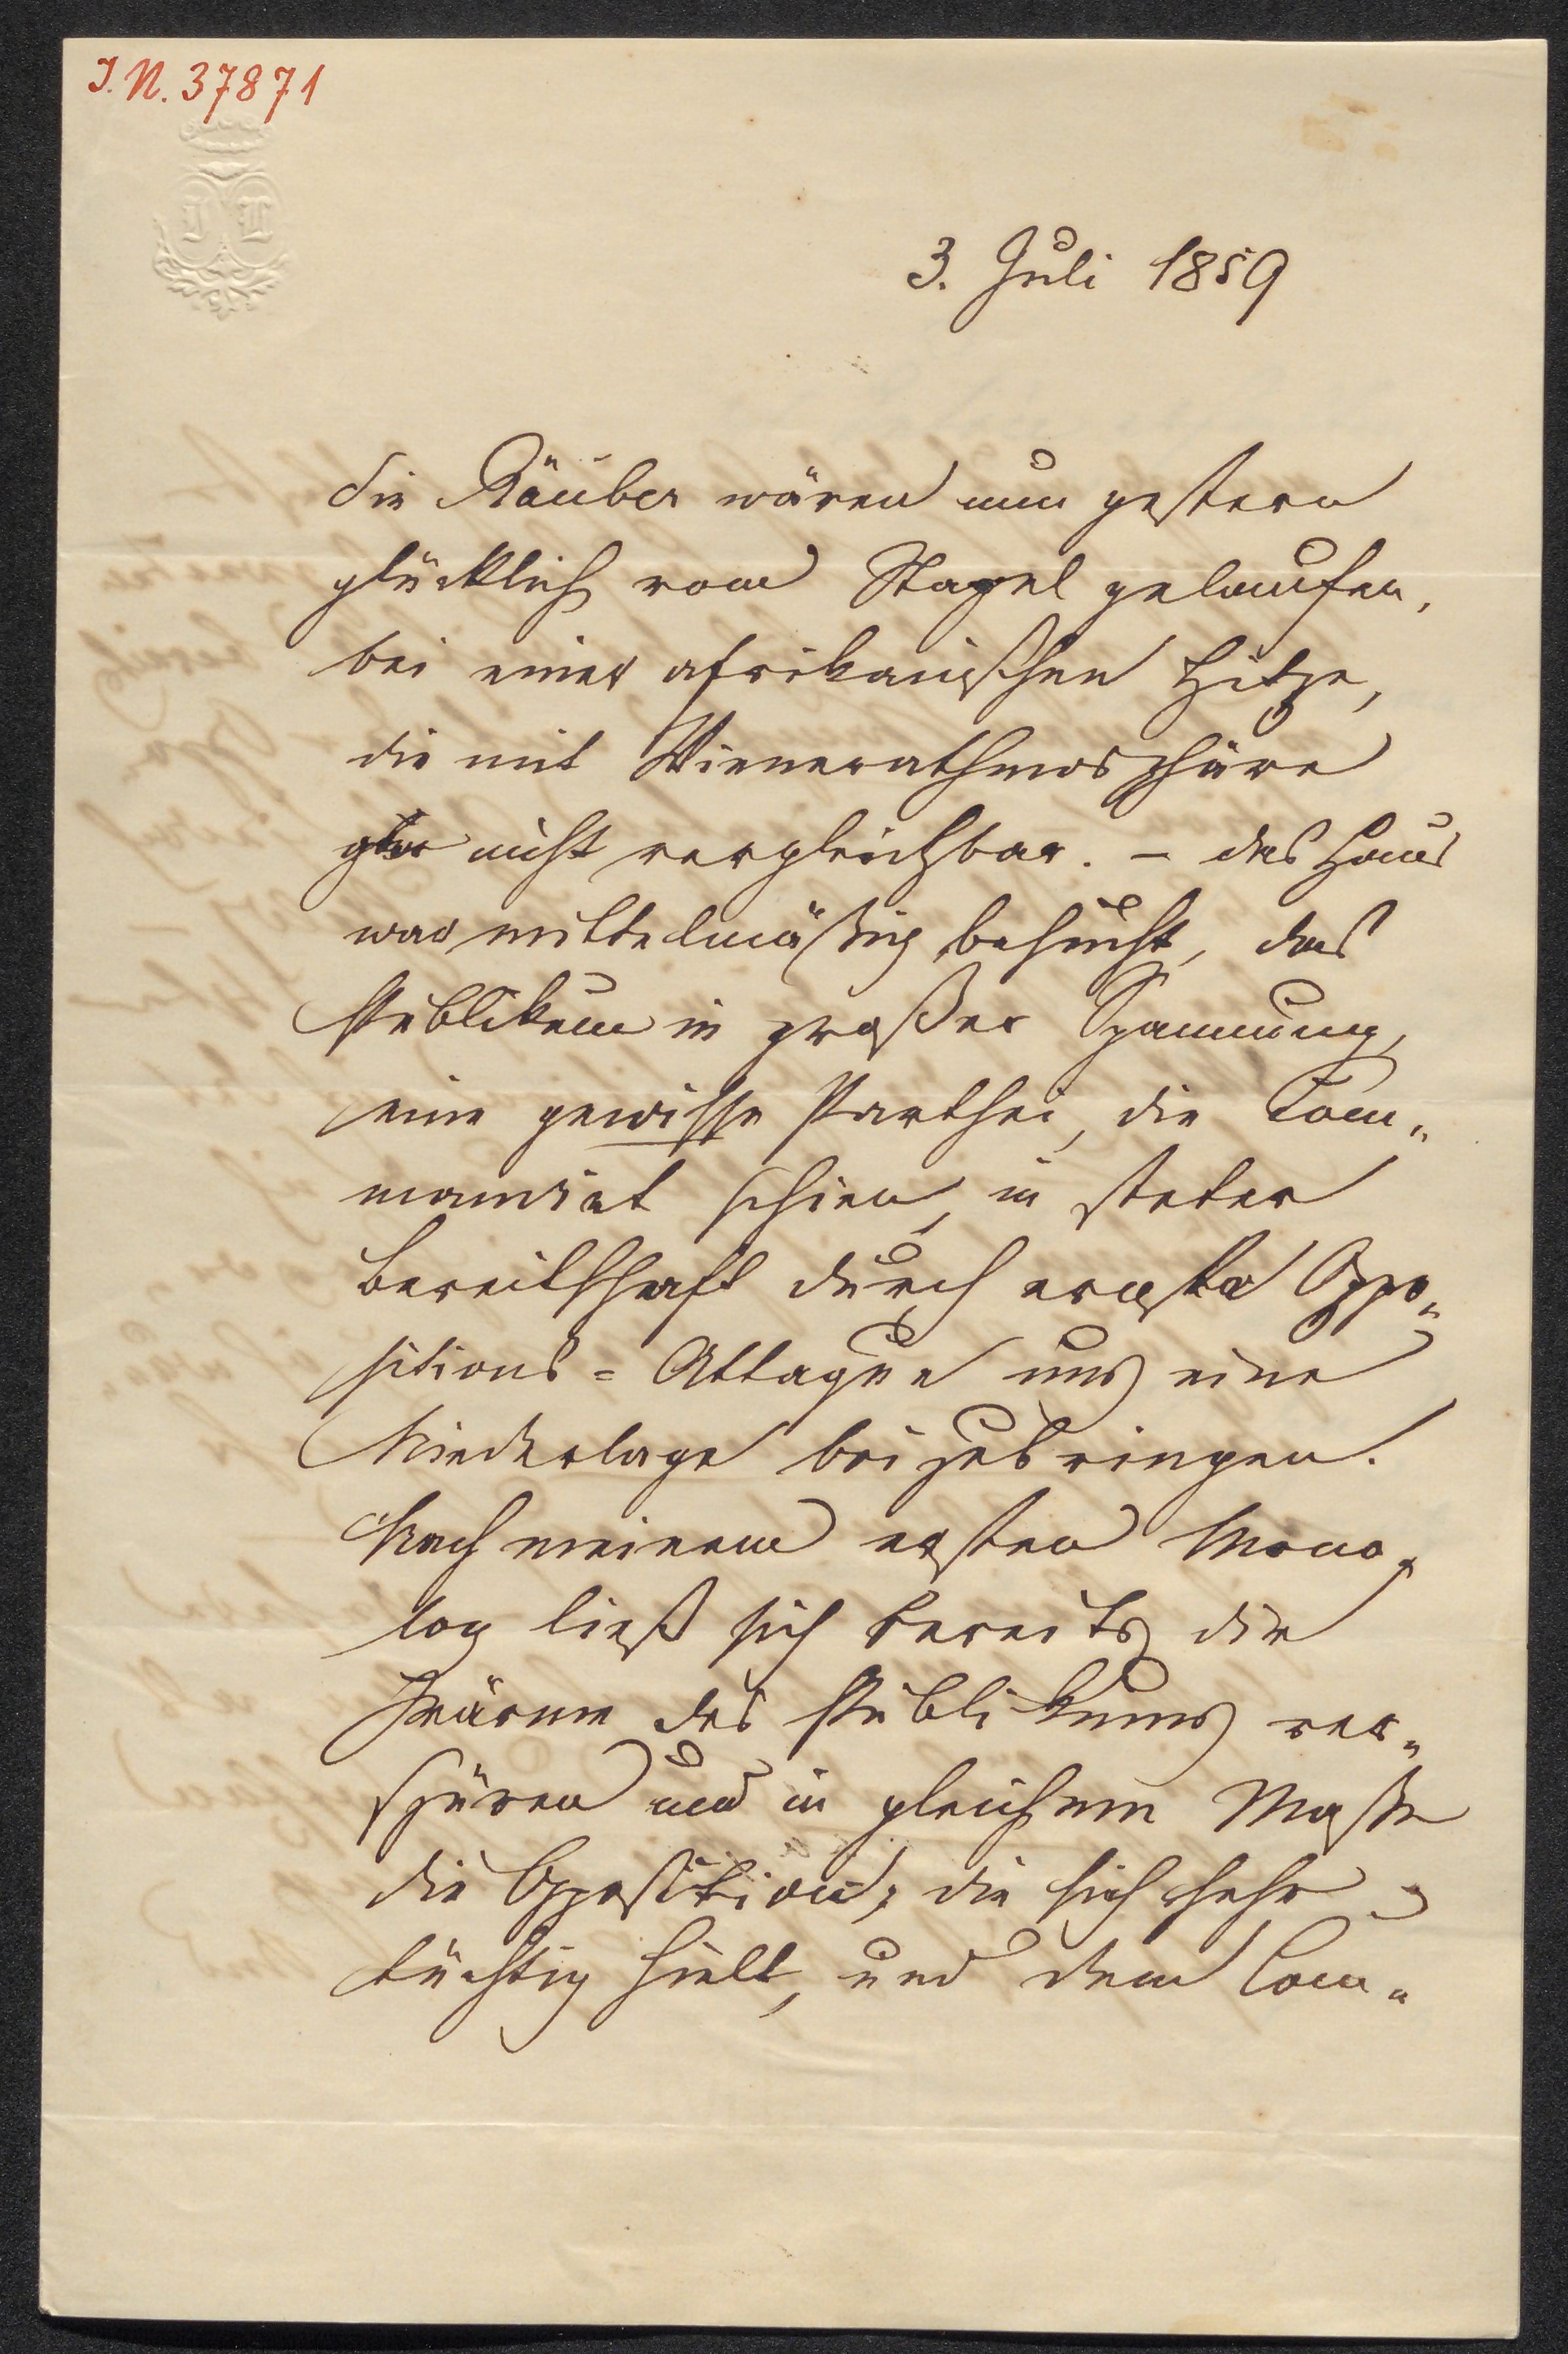 I. N. 37871
3. Juli 1859
Die Räuber wären nun gestern
glücklich vom Stapel gelaufen,
bei einer afrikanischen Hitze,
die mit Wienerathmosphäre
gar nicht vergleichbar. – das Haus
war mittelmäßig besucht, das
Publikum in großer Spannung,
eine gewisse Parthei, die Com„
mandirt schien, in steter
Bereitschaft durch ernste Oppo„
sitions=Attaquen uns eine
Niederlage beizubringen.
Nach meinem ersten Mono„
log ließ sich bereits die
Wärme des Publikums ver„
spüren und in gleichem Maße
die Opposition, die sich sehr
tüchtig hielt, und dem Com„